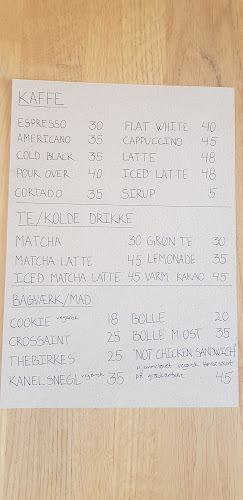 KAFFE
ESPRESSO 30 FLAT WHITE 40
AMERICANO 35 CAPPUCCINO 45
COLD BLACK 35 LATTE 48
POUR OVER 40 ICED LATTE 48
CORTADO 35 SIRUP 5
TE/KOLDE DRIKKE
MATCHA 30 GRØN TE 30
MATCHA LATTE 45 LEMONADE 35
ICED MATCHA LATTE 45 VARM KAKAO 45
BAGVÆRK/MAD
COOKIE vegansk 18 BOLLE 20
CROSSAINT 25 BOLLE M. OST 35
THEBIRKES 25 "NOT CHICKEN SANDWICH"
hjemmelavet vegansk
KANELSNEGL vegansk 35 på 45